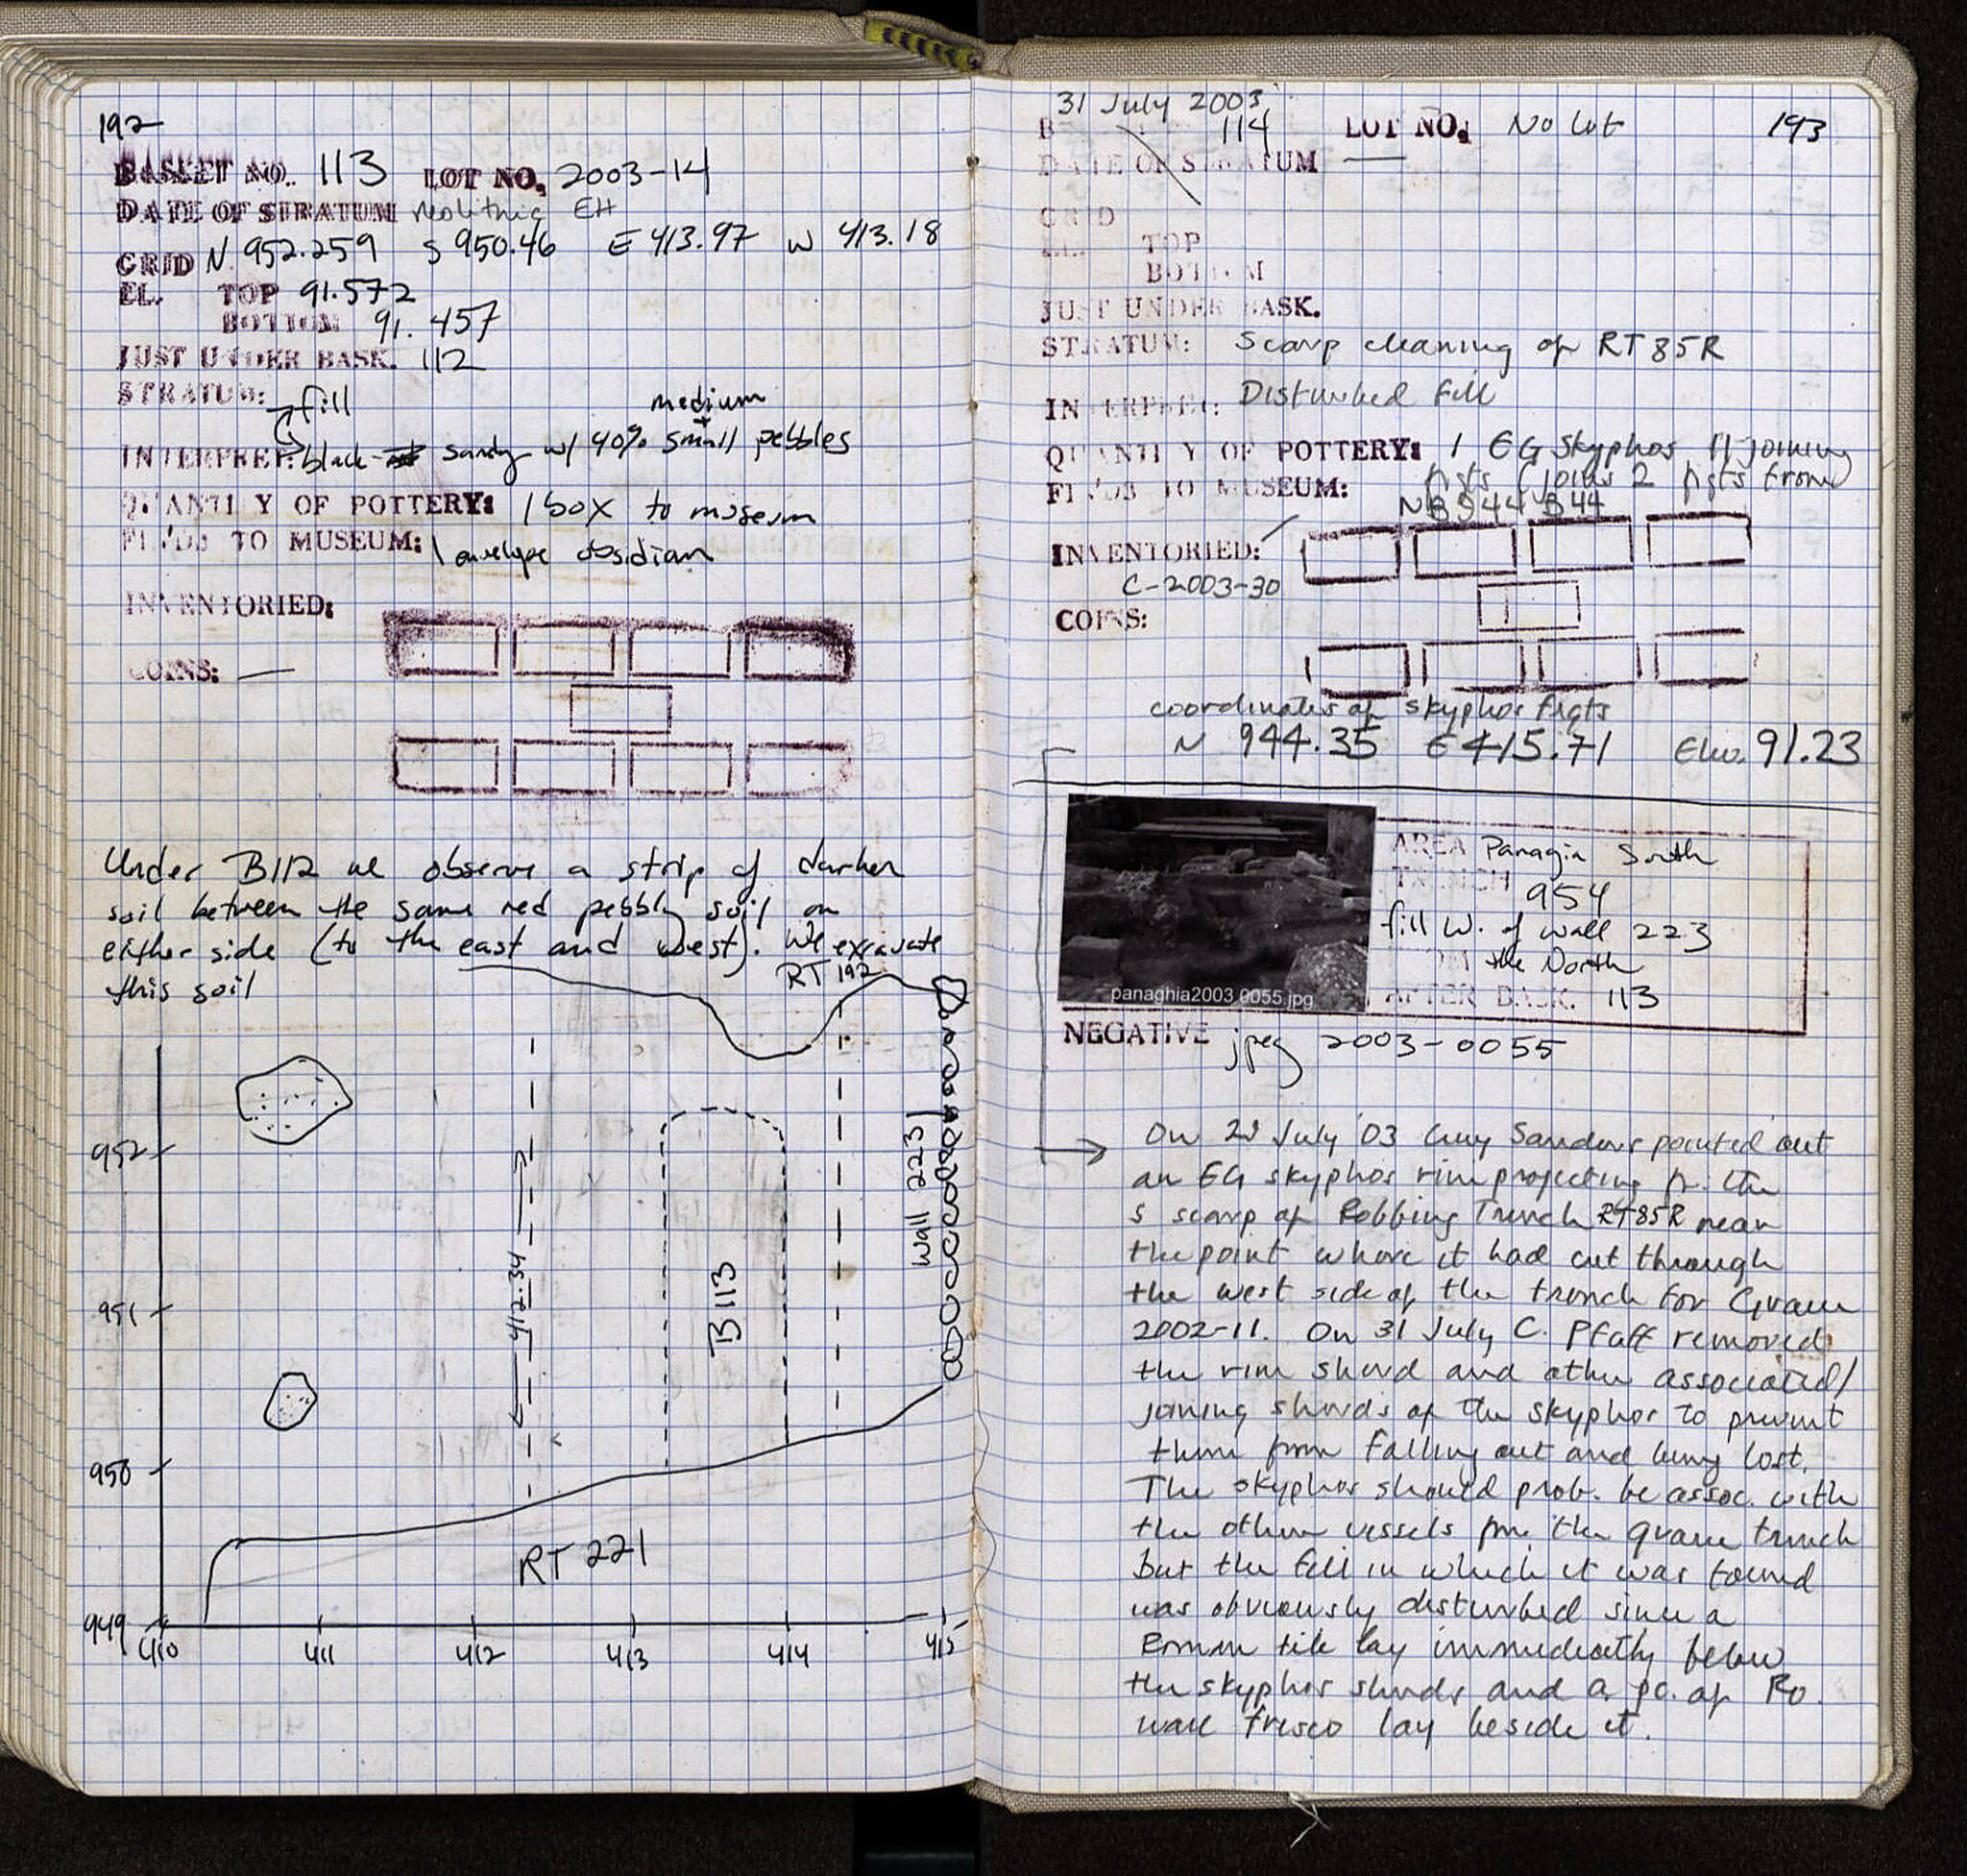 192
BASKET NO. 113 LOT NO. 2003-14
DATE OF STRATUM Neolithic EH
GRID N 952.259 S 950.46 E 413.97 W 413.18
EL. TOP 91.572
BOTTOM 91.457
JUST UNDER BASK. 112
STRATUM: fill
medium
INTERPRET: black sandy w/ 40% small pebbles
QUANTITY OF POTTERY: 1 box to museum
FINDS TO MUSEUM: 1 envelope obsidian
INVENTORIED:
COINS: —
Under B112 we observe a strip of darker
soil between the same red pebbly soil on
either side (to the east and west). We excavate
this soil
RT 192
952
951
950
949
412.34
B 113
Wall 223
RT 221
410 411 412 413 414 415
31 July 2003
B 114 LOT NO. No lot 193
DATE OF STRATUM
GRID
EL. TOP
BOTTOM
JUST UNDER BASK.
STRATUM: Scarp cleaning of RT 85R
INTERPRET: Disturbed fill
QUANTITY OF POTTERY: 1 EG Skyphos 11 joining
FINDS TO MUSEUM: frgts (joins 2 frgts from
B44
INVENTORIED:
C-2003-30
COINS:
coordinates of skyphos frgts
N 944.35 E 415.71 Elev. 91.23
panaghia2003 0055.jpg
AREA Panagia South
TRENCH 954
fill W. of wall 223
FROM the North
AFTER BASK. 113
NEGATIVE jpeg 2003-0055
On July '03 Guy Sanders pointed out
an EG skyphos rim projecting fr. the
S scarp of Robbing Trench RT85R near
the point where it had cut through
the west side of the trench for Grave
2002-11. On 31 July C. Pfaff removed
the rim sherd and other associated/
joining sherds of the skyphos to prevent
them from falling out and being lost.
The skyphos should prob. be assoc. with
the other vessels fm. the grave trench
but the fill in which it was found
was obviously disturbed since a
Roman tile lay immediately below
the skyphos sherds and a pc. of Ro.
wall fresco lay beside it.